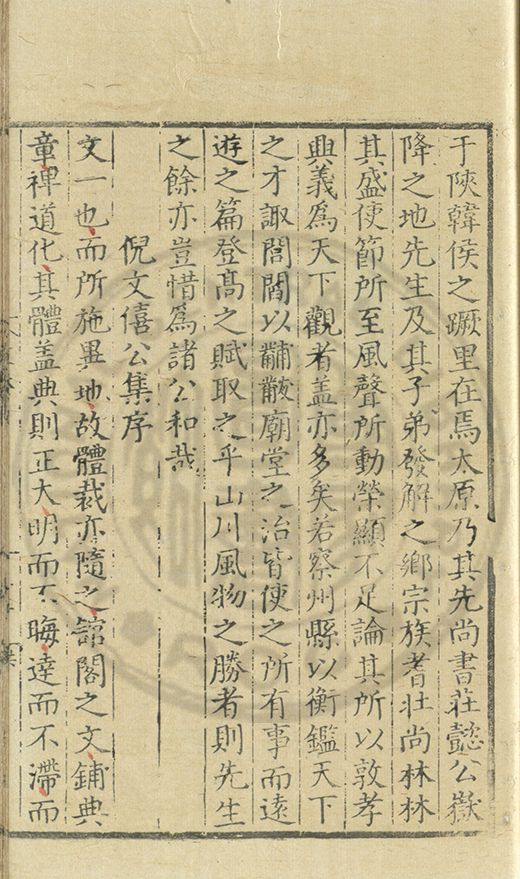 于陝韓侯之蹶里在焉太原乃其先尚書莊懿公嶽
降之地先生及其子弟發解之鄉宗族耆壯尚林林
其盛使節所至風聲所動榮顯不足論其所以敦孝
興義爲天下觀者盖亦多矣若察州縣以衡鑑天下
之才諏閭閻以黼黻廟堂之治皆使之所有事而遠
遊之篇登髙之賦取之乎山川風物之勝者則先生
之餘亦豈惜爲諸公和哉
倪文僖公集序
文一也而所施異地故體裁亦隨之館閣之文鋪典
章裨道化其體盖典則正大明而不晦達而不滯而